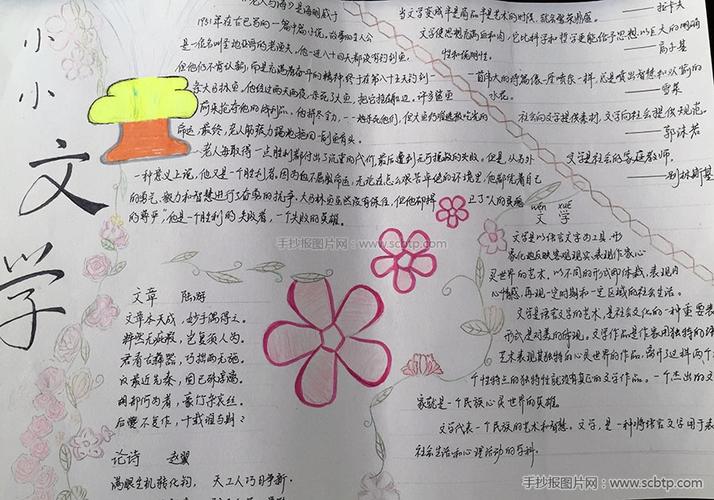 小小文学
《老人与海》是海明威于
1951年在古巴写的一篇中篇小说，故事的主人公
是一位名叫圣地亚哥的老渔夫，他一连八十四天都没有钓到鱼，
但他仍不肯认输，而是充满着奋斗的精神，终于在第八十五天钓到一
条大马林鱼，他经过两天两夜，杀死了大鱼，把它拴在船边，许多鲨鱼
前来抢夺他的战利品，他拼尽全力，一一地杀死他们，但大鱼仍难逃被吃光的
命运，最终，老人筋疲力竭地拖回一副鱼骨头。
老人每取得一点胜利都付出了沉重的代价，最后遭到无可挽救的失败。但是，从另外
一种意义上说，他又是一个胜利者，因为他不屈服命运，无论在怎么艰苦卓绝的环境里，他都凭着自己
的勇气、毅力和智慧进行了奋勇的抗争。大马林鱼虽然没有保住，但他却捍卫了"人的灵魂
的尊严"他是一个胜利的失败者，一个失败的英雄。
当文学变成半是商品半是艺术的时候，就会繁荣鼎盛。
——拉卡夫
文学使思想充满血和肉，它比科学和哲学更能给予思想以巨大的明确
性和说服性。
——高尔基
一首伟大的诗篇像一座喷泉一样，总是喷出智慧和欢愉的
水花。
——雪莱
社会向文学提供素材，文学向社会提供规范。
——郭沫若
文学是社会的家庭教师。
——别林斯基
wén xué
文 学
文学是以语言文字为工具，形
象化地反映客观现实、表现作家心
灵世界的艺术，以不同的形式即体裁，表现内
心情感，再现一定时期和一定区域的社会生活。
文学是语言文字的艺术，是社会文化的一种重要表
形式是对美的体现。文学作品是作家用独特的语
艺术表现其独特的心灵世界的作品，离开了这样两个
个性特点的独特性就没有真正的文学作品。一个杰出的文
家就是一个民族心灵世界的英雄。
文学代表一个民族的艺术和智慧。文学，是一种将语言文字用于表
社会生活和心理活动的学科。
文章 陆游
文章本天成，妙手偶得之。
粹然无疵瑕，岂复须人为。
君看古彝器，巧拙两无施。
汉最近先秦，固已殊淳漓。
胡部何为者，豪竹杂哀丝。
后夔不复作，千载谁与期？
论诗 赵翼
满眼生机转化钧，天工人巧日争新。
手抄报图片网：www.scbtp.com
手抄报图片网：www.scbtp.com